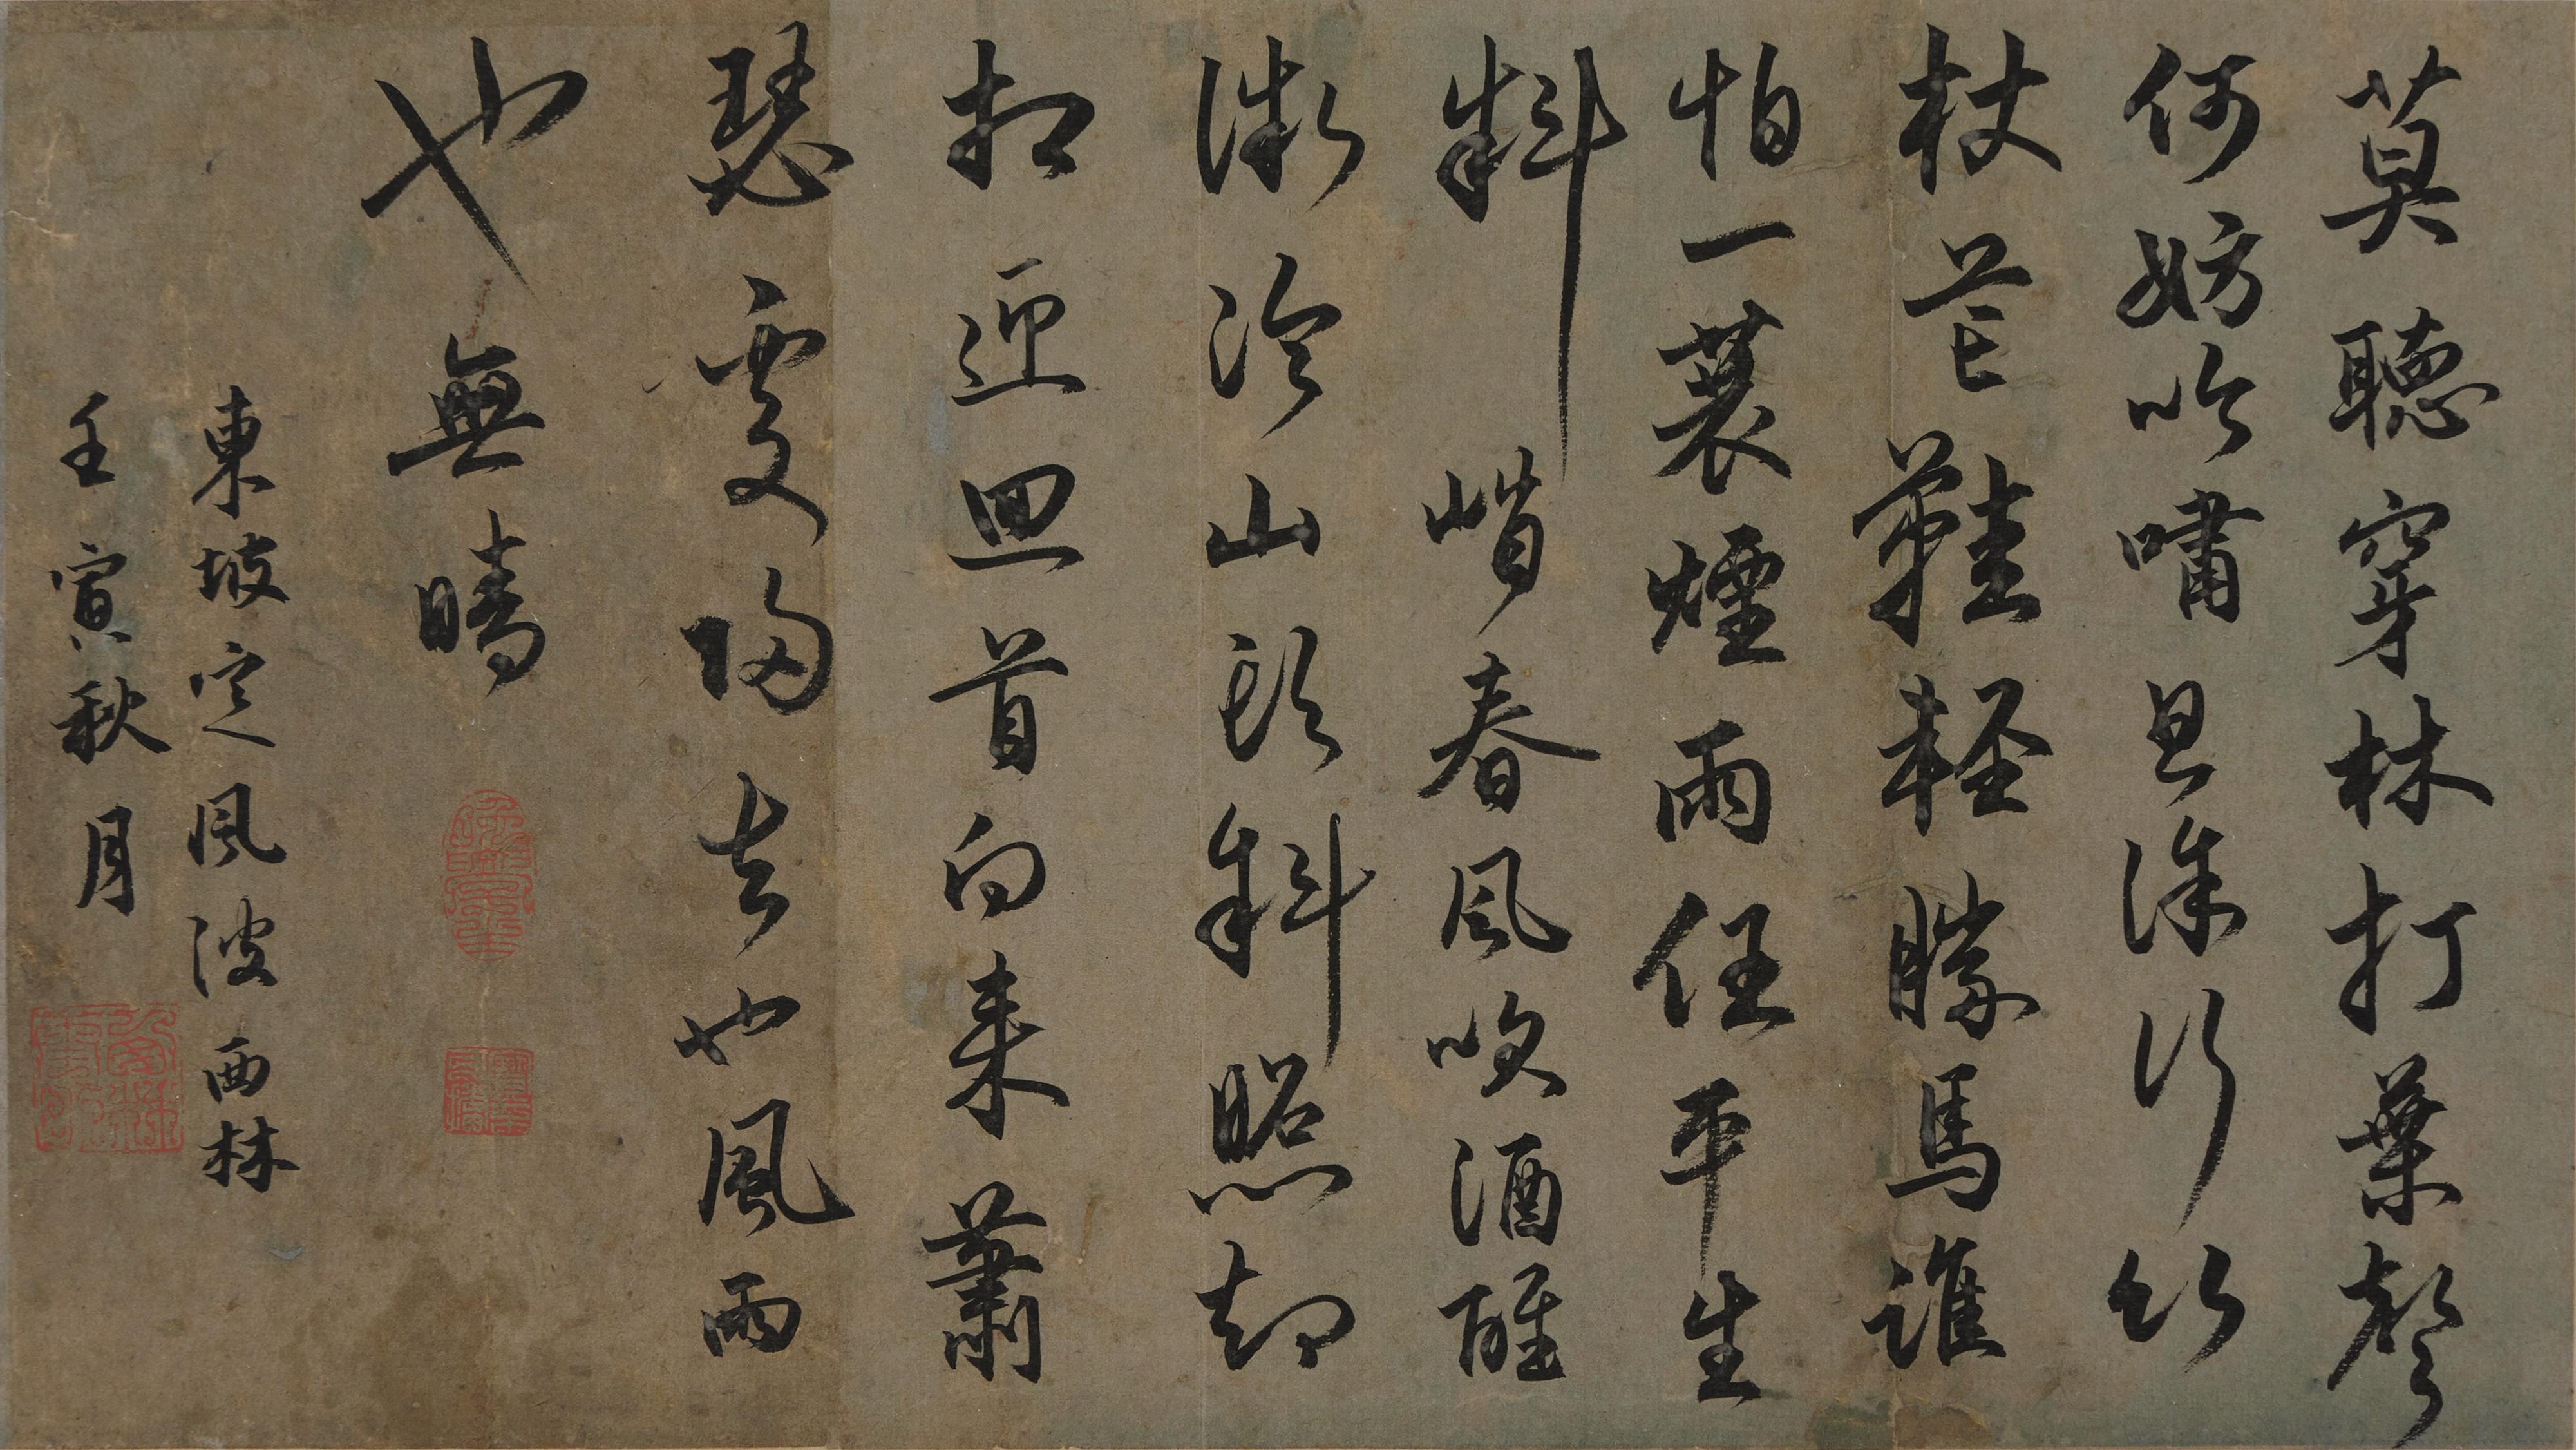 莫聽穿林打葉聲
何妨吟嘯且徐行竹
杖芒鞋軽勝馬誰
怕一蓑煙雨任平生
料峭春風吹酒醒
微冷山頭斜照却
相迎回首向来蕭
瑟處歸去也風雨
也無晴
東坡定風波 西林
壬寅秋月